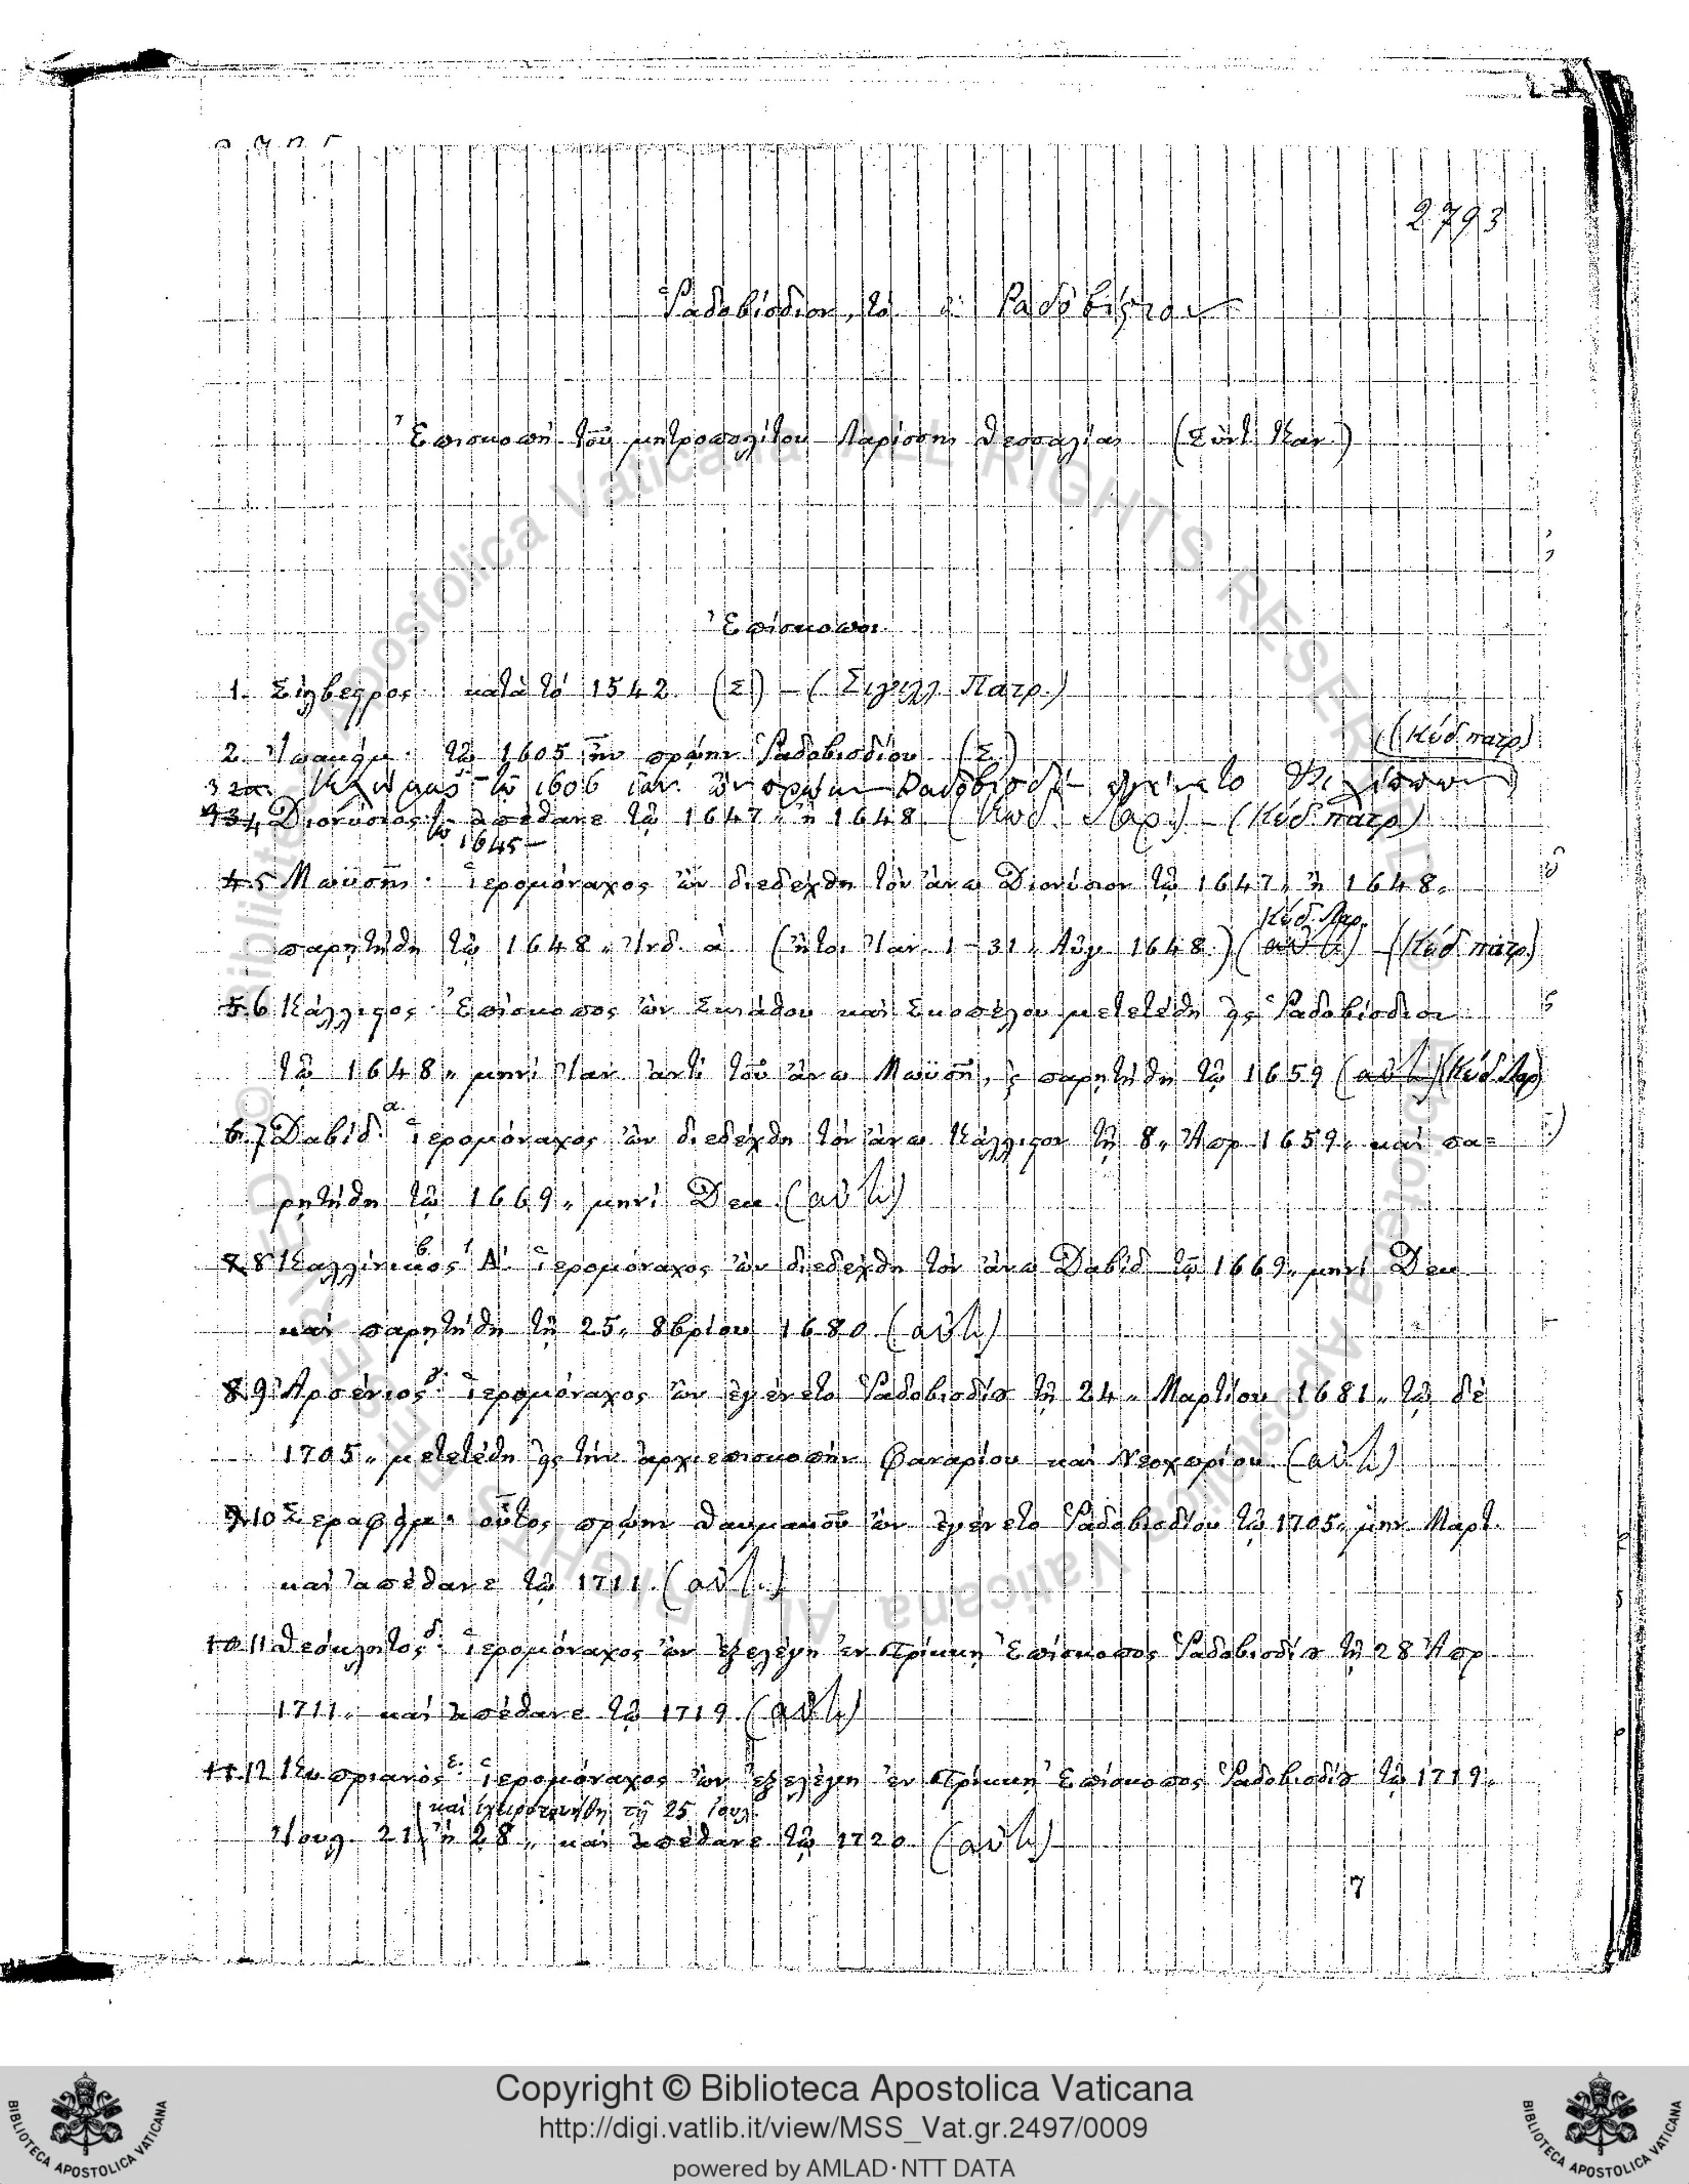 2793
Ῥαδοβίσδιον, τό ἢ Ραδοβίςιον
Ἐπισκοπὴ τοῦ μητροπολίτου Λαρίσσης Θεσσαλίας (Σύντ. Καν.)
Ἐπίσκοποι
1. Σίλβεςρος· κατὰ τό 1542. (Σ) – (Σιγιλλ. Πατρ.)
2. Ἰωακεὶμ· τῷ 1605 ἦν πρῴην Ῥαδοβισδίου (Σ.) (Κώδ. πατρ.)
τῷ 1606 Ἰαν. ὢν πρῴην Ραδοβισδί
4 Διονύσιος· ἀπέθανε τῷ 1647 „ ἢ 1648 (Κωδ. Λαρ.) – (Κώδ. πατρ.)
τῷ 1645 –
5 Μωϋσῆς· ἱερομόναχος ὢν διεδέχθη τὸν ἄνω Διονύσιον τῷ 1647 „ ἢ 1648 „
Κώδ. Λαρ.
παρῃτήθη τῷ 1648 „ Ἰνδ. α. (ἤτοι Ἰαν. 1 – 31 „ Αὐγ. 1648.) (αὐτ.) – (Κώδ. πατρ.)
5 6 Κάλλιςος· Ἐπίσκοπος ὢν Σκιάθου καὶ Σκοπέλου μετετέθη εἰς Ῥαδοβίσδιον
τῷ 1648 „ μηνὶ Ἰαν. ἀντὶ τοῦ ἄνω Μωϋσῆ, ϗ παρῃτήθη τῷ 1659 (αὐτ.) (Κώδ. Λαρ)
6. 7 Δαβίδ α.· ἱερομόναχος ὢν διεδέχθη τὸν ἄνω Κάλλιςον τῇ 8 „ Ἀπρ. 1659 „ καὶ πα=
ρῃτήθη τῷ 1669 „ μηνὶ Δεκ. (αὐτ.)
7 8 Καλλίνικος β. Α΄. ἱερομόναχος ὢν διεδέχθη τὸν ἄνω Δαβίδ τῷ 1669 „ μηνὶ Δεκ.
καὶ παρῃτήθη τῇ 25 „ 8βρίου 1680 (αὐτ.)
8 9 Ἀρσένιος γ.· ἱερομόναχος ὢν ἐγένετο Ῥαδοβισδίου τῇ 24 „ Μαρτίου 1681 „ τῷ δὲ
1705 „ μετετέθη εἰς τὴν ἀρχιεπισκοπὴν Φαναρίου καὶ Νεοχωρίου. (αὐτ.)
9. 10 Σεραφεὶμ· οὗτος πρῴην Θαυμακοῦ ὢν ἐγένετο Ῥαδοβισδίου τῷ 1705 „ μην. Μαρτ.
καὶ ἀπέθανε τῷ 1711. (αὐτ.)
10 11 Θεόκλητος δ.· ἱερομόναχος ὢν ἐξελέγη ἐν Τρίκκῃ Ἐπίσκοπος Ῥαδοβισδίου τῇ 28 Ἀπρ.
1711 „ καὶ ἀπέθανε τῷ 1719. (αὐτ.)
11. 12 Κυπριανὸς ε.· ἱερομόναχος ὢν ἐξελέγη ἐν Τρίκκῃ Ἐπίσκοπος Ῥαδοβισδίου τῷ 1719 „
καὶ ἐχειροτονήθη τῇ 25 Ἰουλ.
Ἰουλ. 21 ἢ 28 „ καὶ ἀπέθανε τῷ 1720. (αὐτ.)
7
Copyright © Biblioteca Apostolica Vaticana
http://digi.vatlib.it/view/MSS_Vat.gr.2497/0009
powered by AMLAD·NTT DATA